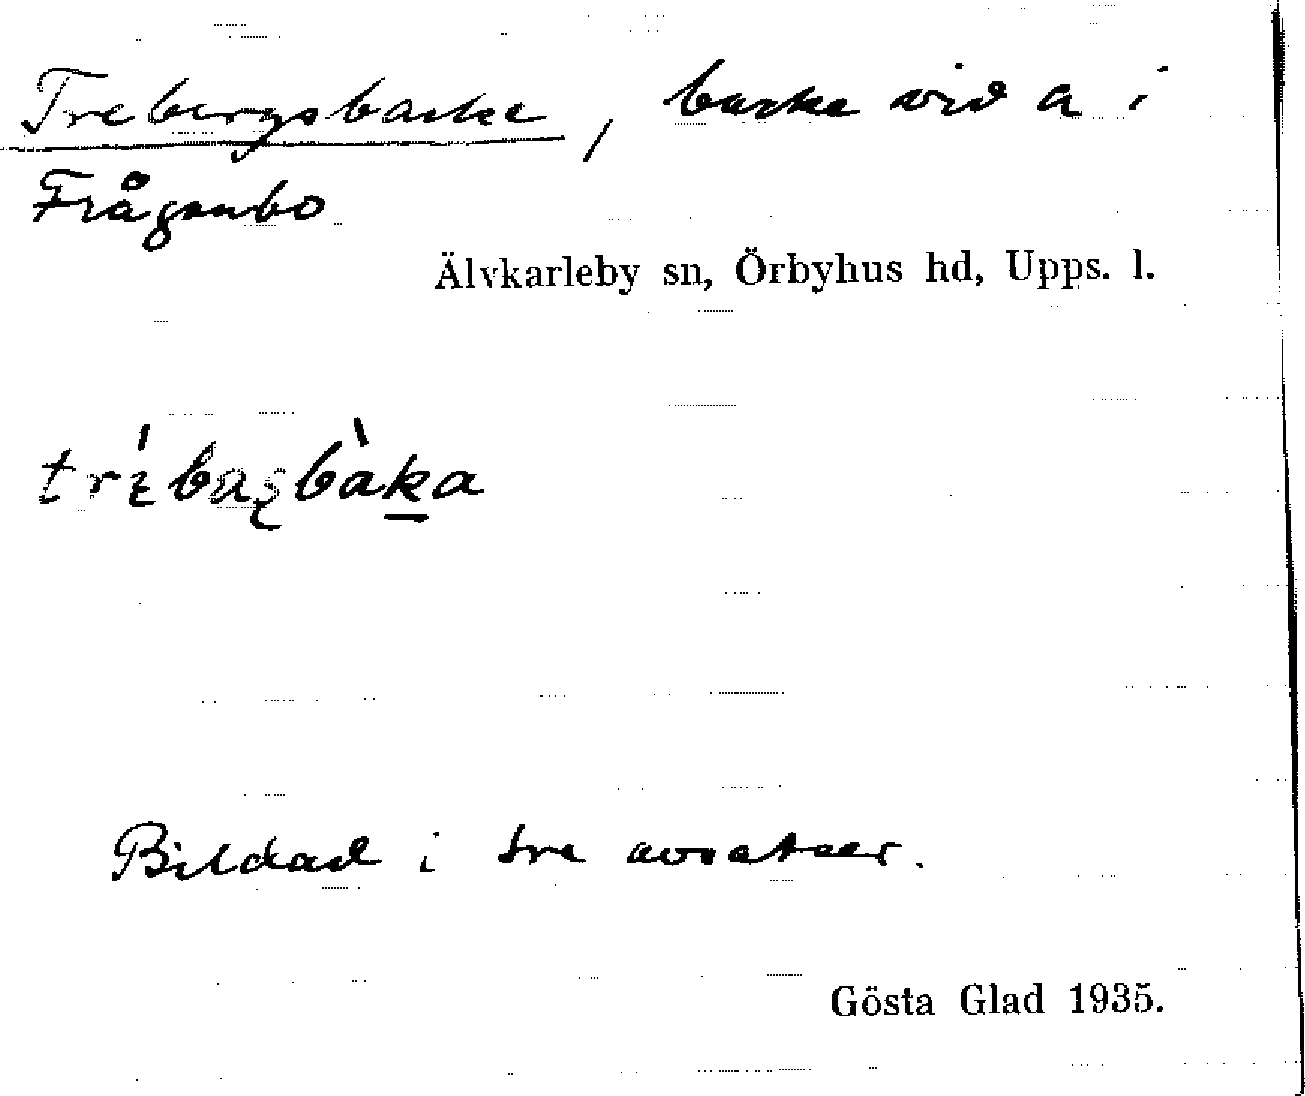 Trebergsbacke, backe vid a i
Frågonbo
Älvkarleby sn, Örbyhus hd, Upps. l.
Bildad i tre avsatser.
Gösta Glad 1935.